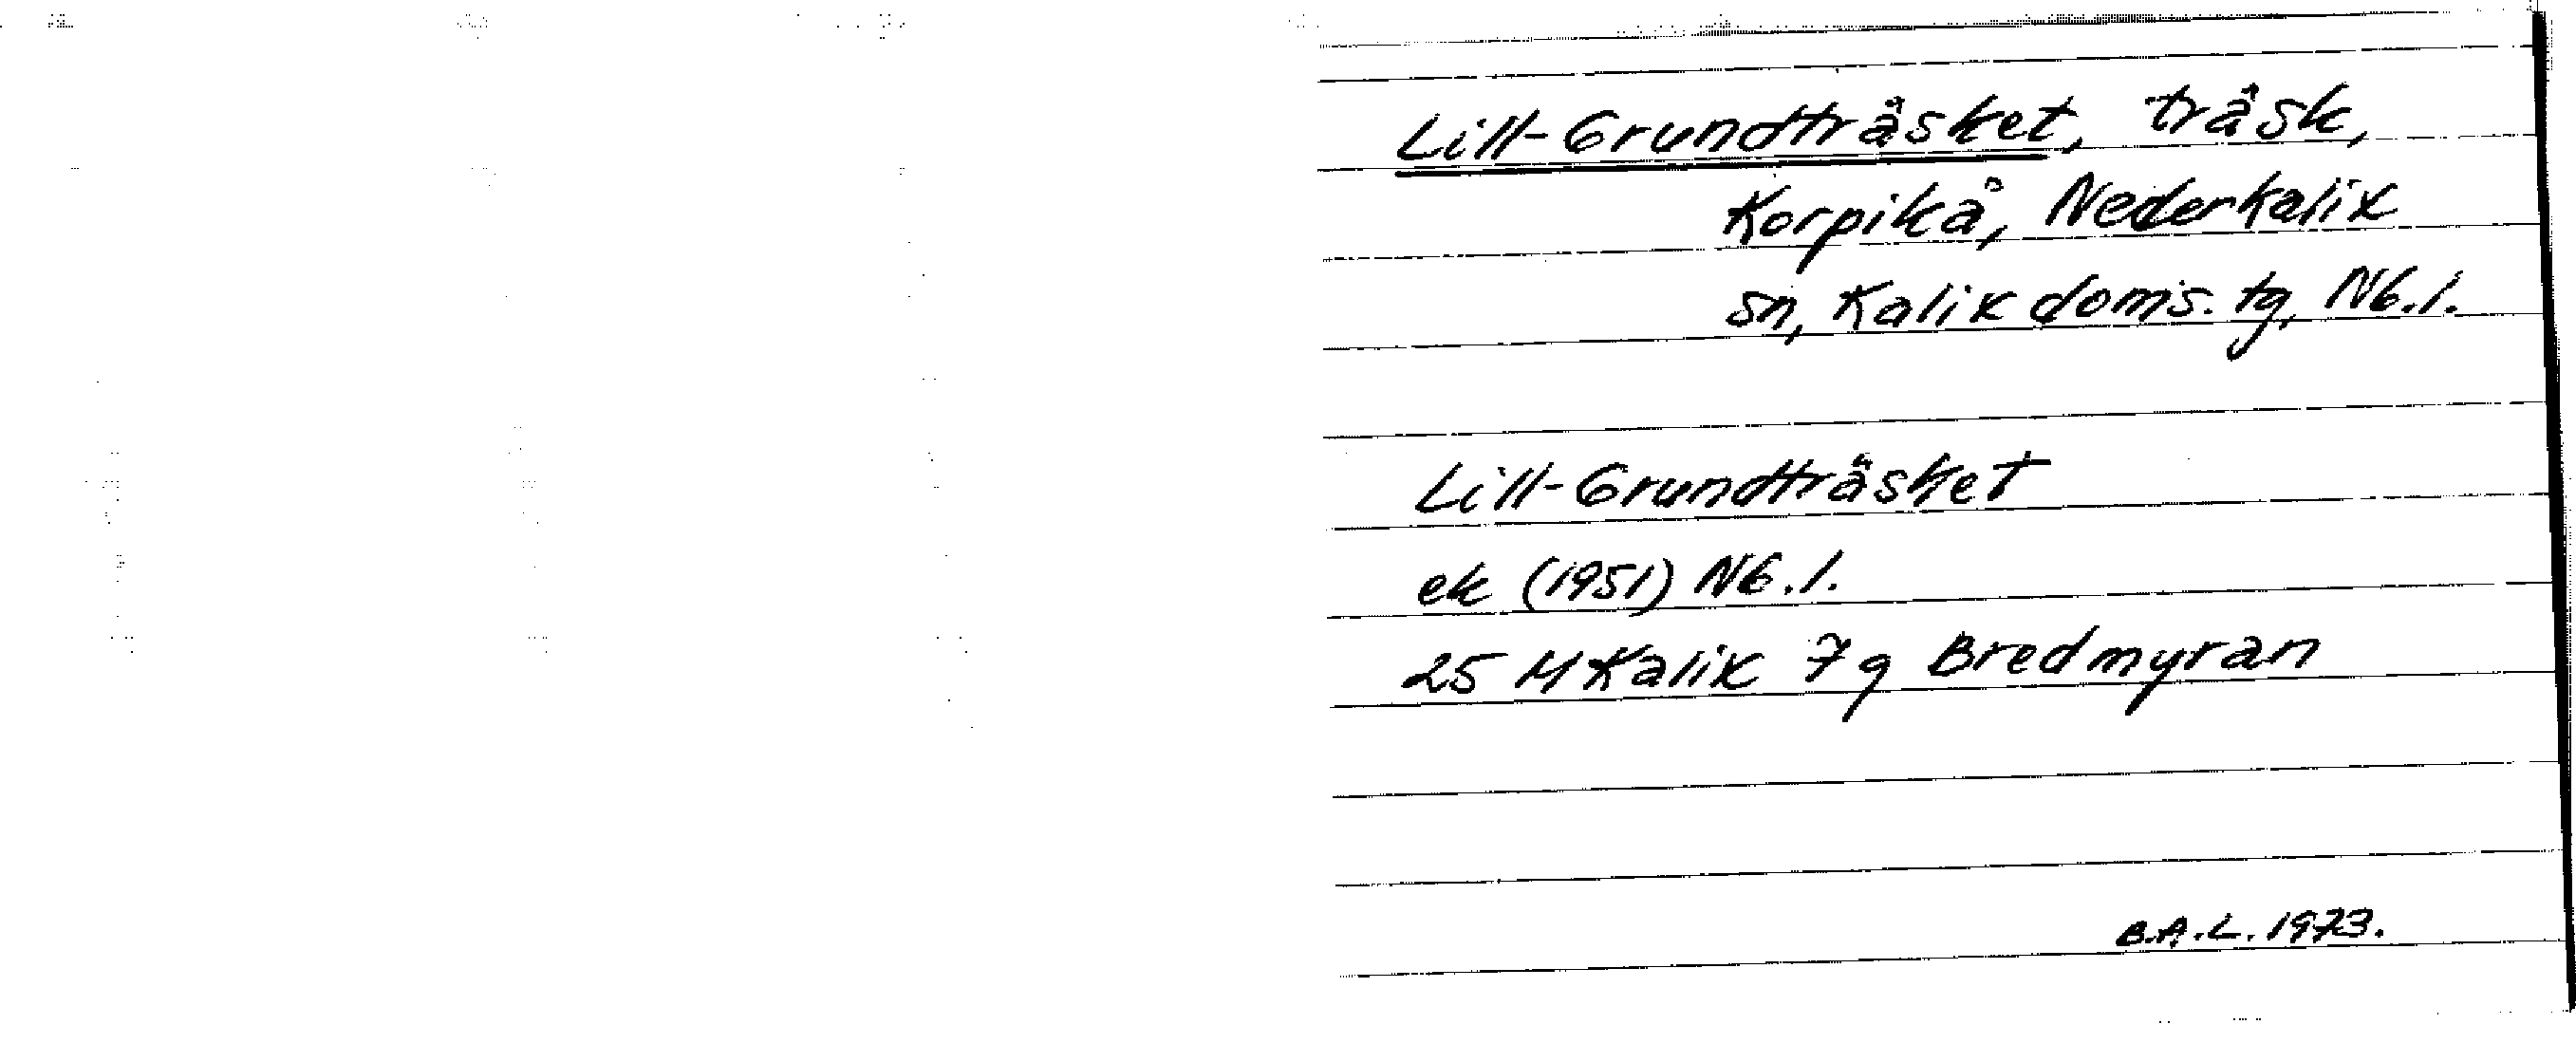 Lill-Grundträsket, träsk,
Korpikå, Nederkalix
sn, Kalix doms. tg, Nb. l.
Lill-Grundträsket
ek (1951) Nb. l.
25 M Kalix 7g Bredmyran
B.A.L. 1973.